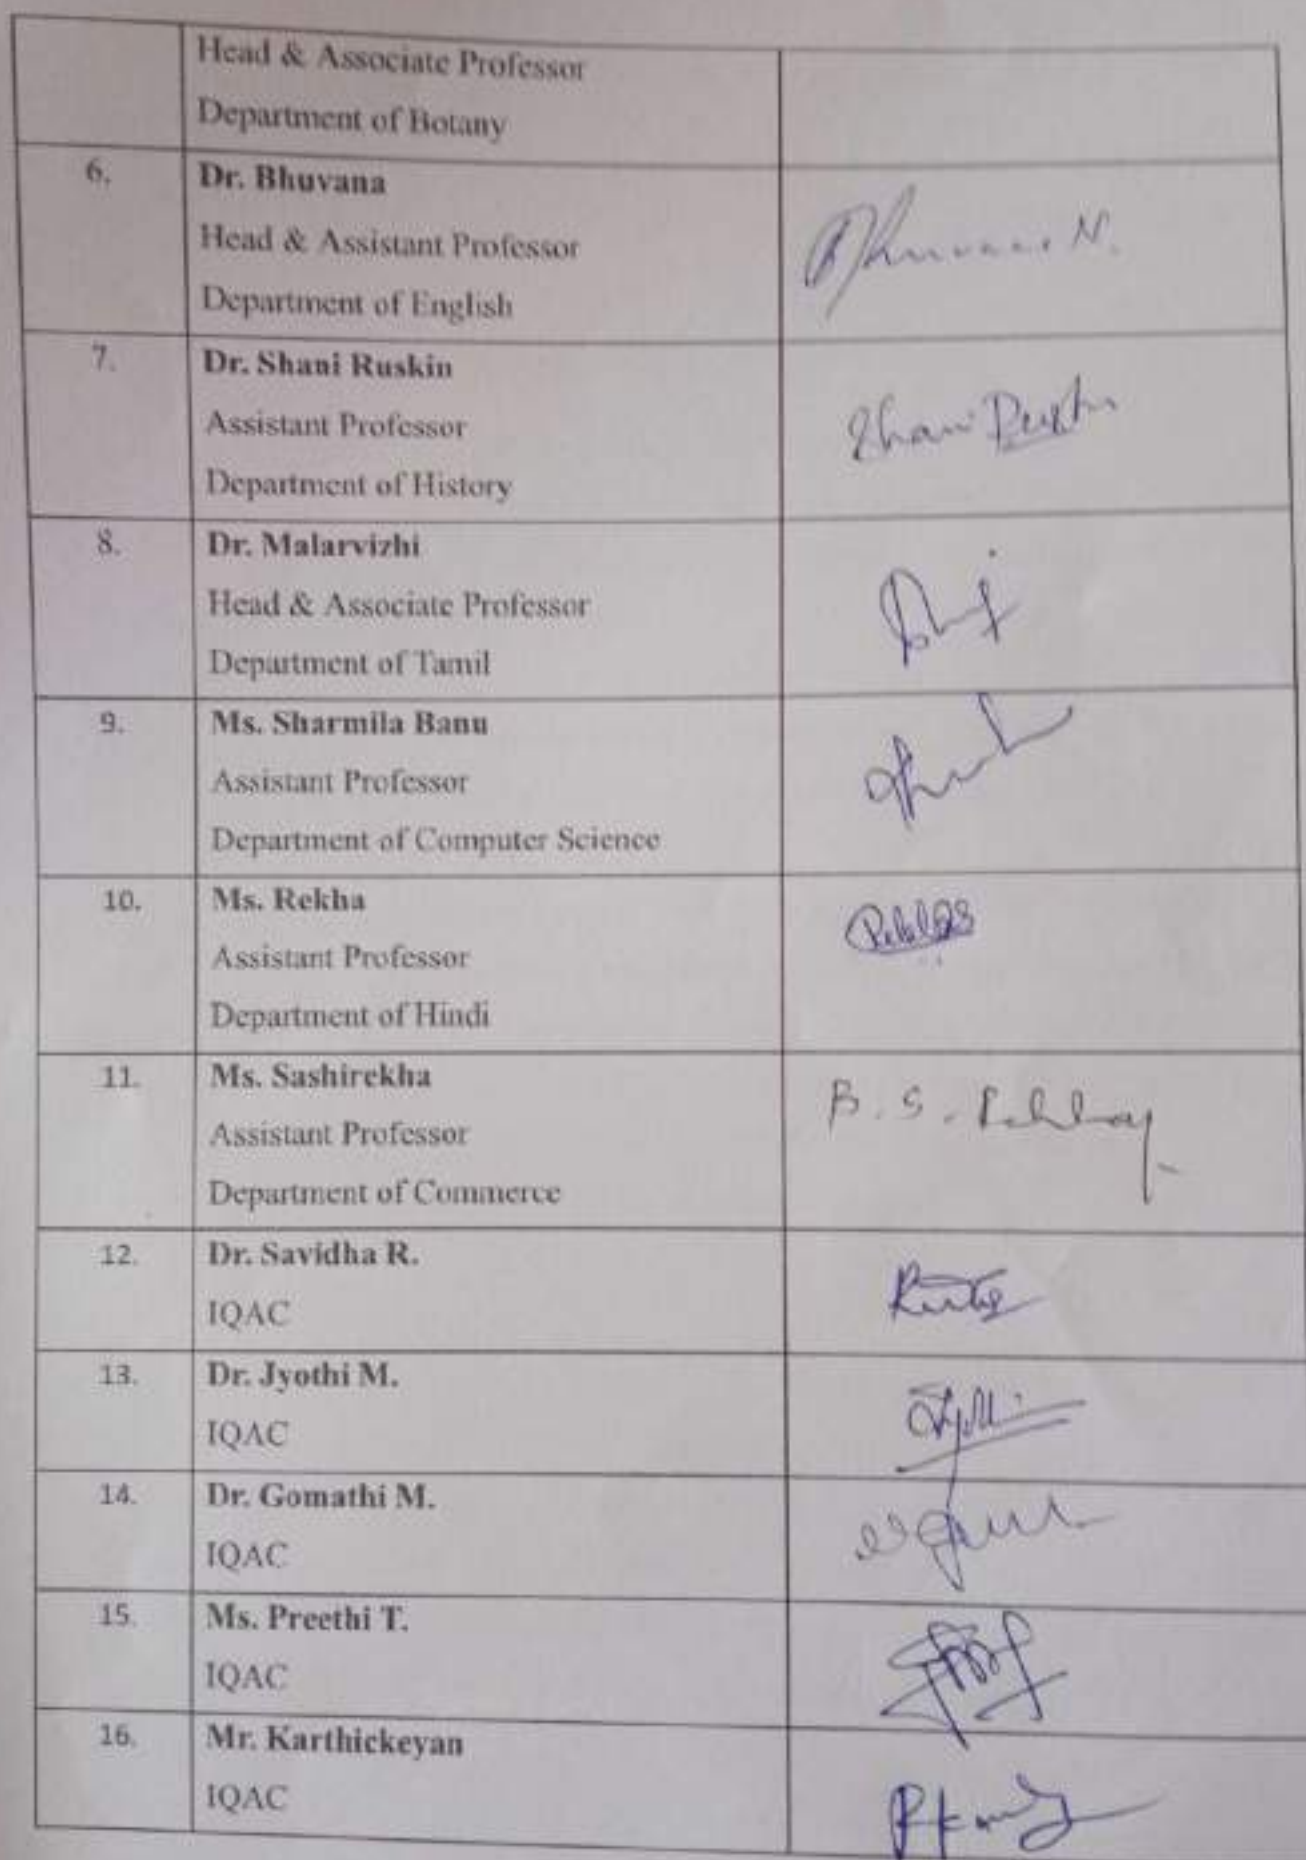 Head & Associate Professor
Department of Botany
6.
Dr. Bhuvana
Head & Assistant Professor
Department of English
Bhuvana N.
7.
Dr. Shani Ruskin
Assistant Professor
Department of History
Shani
8.
Dr. Malarvizhi
Head & Associate Professor
Department of Tamil
9.
Ms. Sharmila Banu
Assistant Professor
Department of Computer Science
10.
Ms. Rekha
Assistant Professor
Department of Hindi
11.
Ms. Sashirekha
Assistant Professor
Department of Commerce
B. S.
12.
Dr. Savidha R.
IQAC
13.
Dr. Jyothi M.
IQAC
14.
Dr. Gomathi M.
IQAC
15.
Ms. Preethi T.
IQAC
16.
Mr. Karthickeyan
IQAC